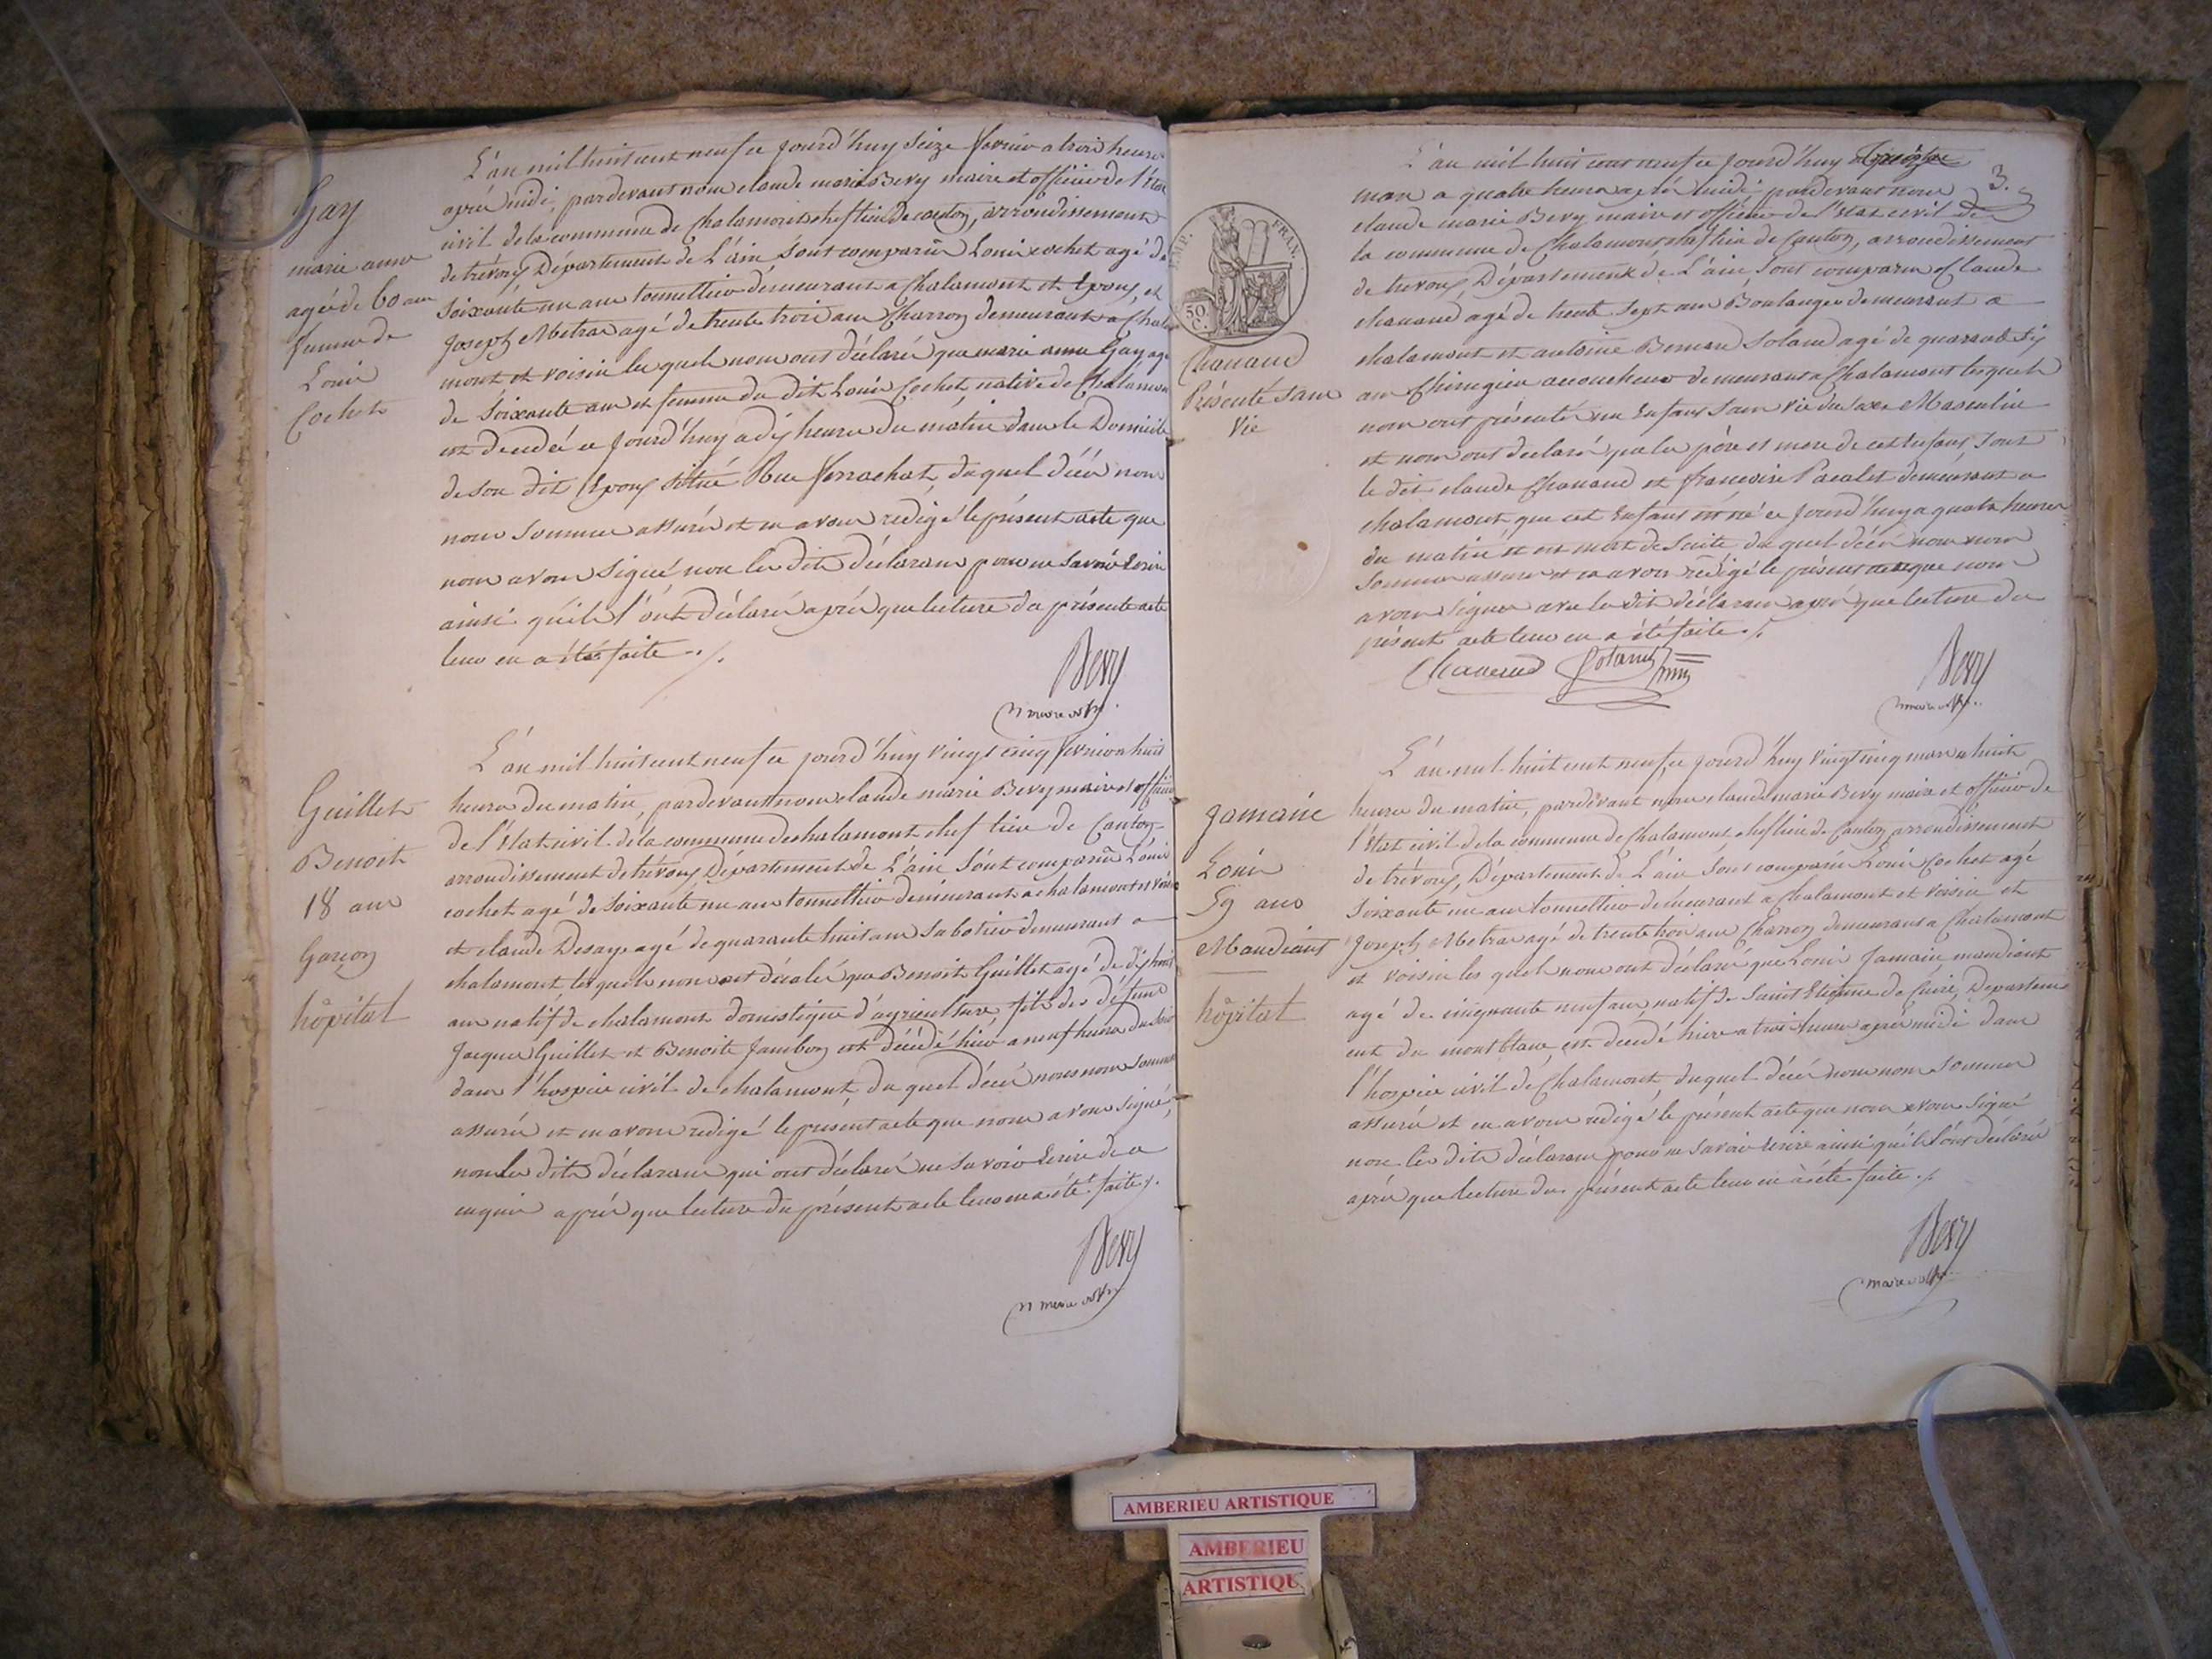 Gay
marie anne
agée de 60 ans
femme de
Louis
Cochet
L'an mil huit cent neuf ce jourd'huy seize fevrier a trois heures
après midi, pardevant nous claude marie Bevy maire et officier de l'état
civil de la commune de Chalamont chef lieu de canton, arrondissement
de trévoux, Département de L'ain sont comparus Louis cochet agé de
soixante un ans tonnellier demeurant a Chalamont et Epoux, et
Joseph Metras agé de trente trois ans Charron demeurant a Chala
mont et voisin les quels nous ont déclaré que marie anne Gay agée
de soixante ans et femme du dit Louis Cochet, native de Chalamont
est decedée ce jourd'huy a dix heures du matin dans le Domicile
de son dit Epoux situé Rue ferrachat, duquel décés nous
nous sommes assurés et en avons redigé le présent acte que
nous avons signé non les dits déclarans pour ne savoir Ecrire
ainsi qu'ils l'ont déclaré après que lecture du présent acte
leur en a été faite ./.
Bevy
maire
Guillet
Benoit
18 ans
Garçon
hôpital
L'an mil huit cent neuf ce jourd'huy vingt cinq fevrier a huit
heures du matin, pardevant nous claude marie Bevy maire et officier
de l'état civil de la commune de chalamont chef lieu de Canton
arrondissement de trévoux Département de L'ain sont comparus Louis
cochet agé de soixante un ans tonnellier demeurant a chalamont et voisin
et claude Desay agé de quarante huit ans sabotier demeurant a
chalamont les quels nous ont déclaré que Benoit Guillet agé de dix huit
ans natif de chalamont domestique d'agriculture fils des défunts
Jacques Guillet et Benoite Jambon est décédé hier a neuf heures du soir
dans l'hospice civil de chalamont, du quel décés nous nous sommes
assurés et en avons redigé le présent acte que nous avons signé,
non les dits déclarans qui ont déclaré ne savoir Ecrire de ce
enquis après que lecture du présent acte leur en a été faite ./.
Bevy
maire
3.
EMP. FRAN.
50 C.
Chanaud
Présenté sans
Vie
L'an mil huit cent neuf ce jourd'huy
mars a quatre heures après midi pardevant nous
claude marie Bevy maire et officier de l'état civil de
la commune de Chalamont chef lieu de Canton, arrondissement
de trevoux, Département de L'ain sont comparus Claude
chanaud agé de trente sept ans Boulanger demeurant a
chalamont et antoine Bernard Soland agé de quarante six
ans Chirugien accoucheur demeurant a Chalamont lesquels
nous ont présenté un Enfant sans vie du sexe Masculin
et nous ont declaré que les père et mere de cet Enfant sont
le dit claude Chanaud et françoise Pacalet demeurant a
chalamont, que cet Enfant est né ce jourd'huy a quatre heures
du matin et est mort de suite du quel décés nous nous
sommes assurés et en avons redigé le présent acte que nous
avons signer avec les dits déclarans après que lecture du
présent acte leur en a été faite ./.
Chanaud Soland
Bevy
maire
Jamain
Louis
59 ans
Mandiant
hôpital
L'an mil huit cent neuf, ce jourd'huy vingt cinq mars a huit
heures du matin, pardevant nous claude marie Bevy maire et officier de
l'état civil de la commune de Chalamont, chef lieu de Canton, arrondissement
de trévoux, Département de L'ain sont comparus Louis Cochet agé
soixante un ans tonnellier demeurant a Chalamont et voisin et
Joseph Metras agé de trente trois ans Charron demeurant a Chalamont
et voisin les quels nous ont déclaré que Louis Jamain, mandiant
agé de cinquante neuf ans, natif de Saint Etienne de Cuine, Departem
ent du mont blanc, est decedé hier a trois heures après midi dans
l'hospice civil de Chalamont, duquel décés nous nous sommes
assurés et en avons redigé le présent acte que nous avons signé
non les dits déclarans pour ne savoir Ecrire ainsi qu'ils l'ont déclaré
après que lecture du présent acte leur en a été faite ./.
Bevy
maire
AMBERIEU ARTISTIQUE
AMBERIEU
ARTISTIQU